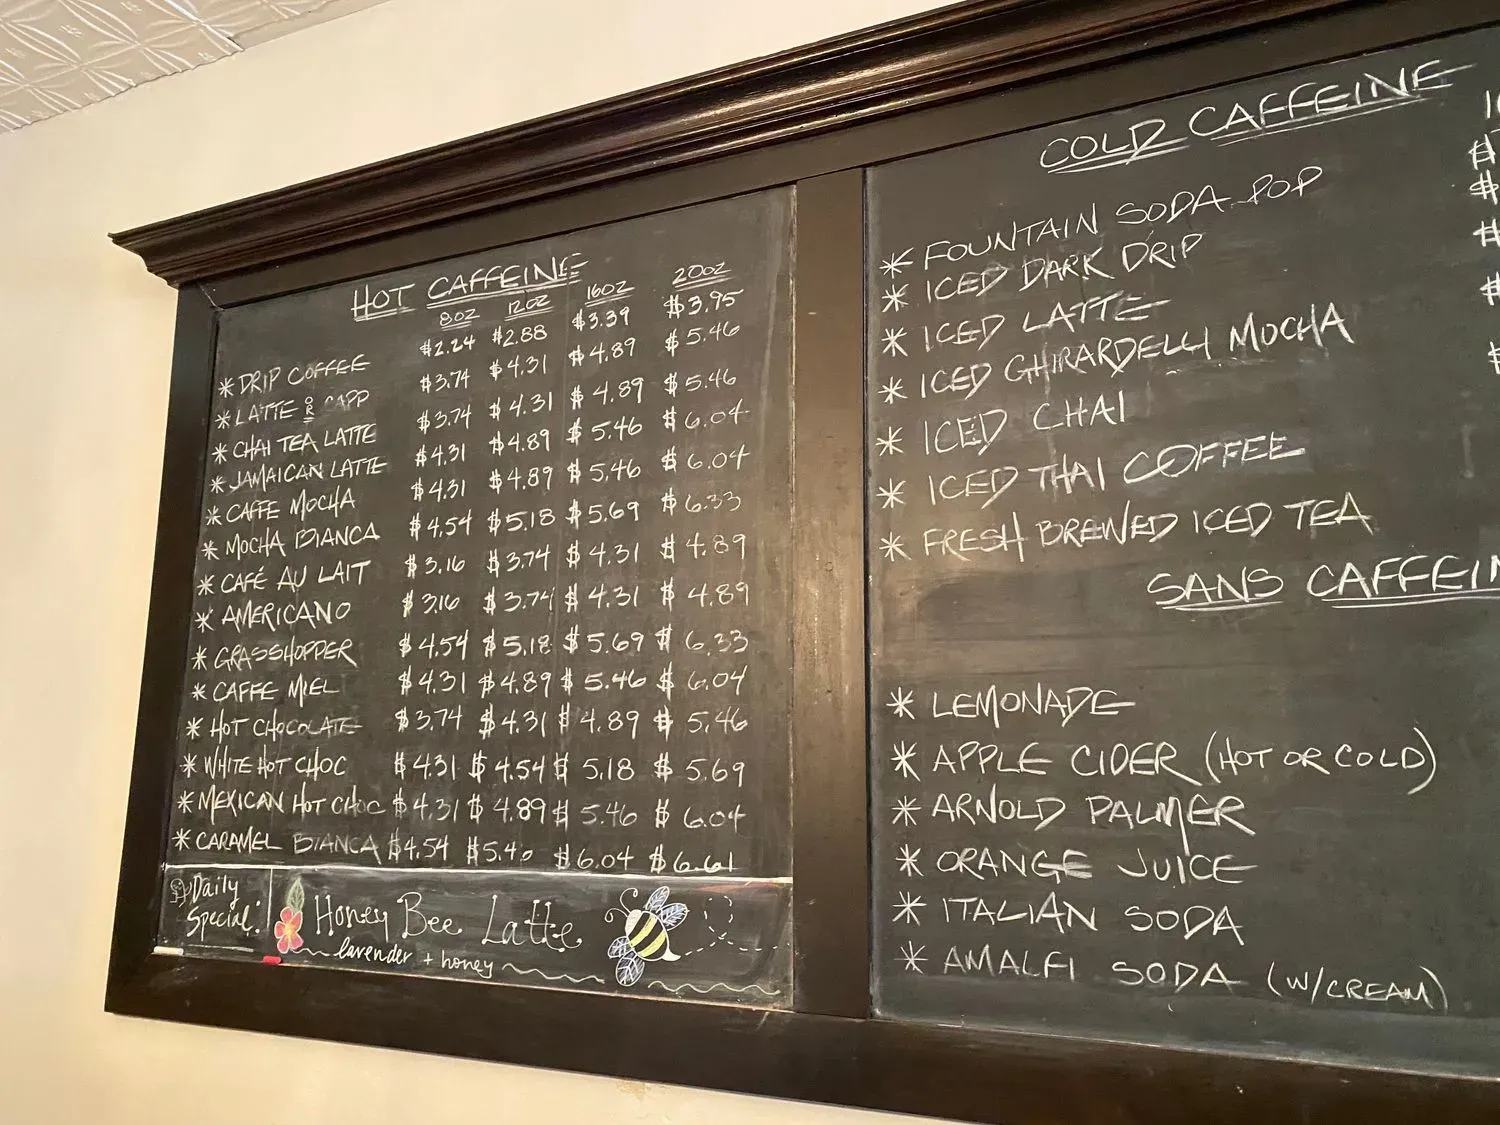 HOT CAFFEINE
8oz 12oz 16oz 20oz
* DRIP COFFEE $2.24 $2.88 $3.39 $3.95
* LATTE OR CAPP $3.74 $4.31 $4.89 $5.46
* CHAI TEA LATTE $3.74 $4.31 $4.89 $5.46
* JAMAICAN LATTE $4.31 $4.89 $5.46 $6.04
* CAFFE MOCHA $4.31 $4.89 $5.46 $6.04
* MOCHA BIANCA $4.54 $5.18 $5.69 $6.33
* CAFÉ AU LAIT $3.16 $3.74 $4.31 $4.89
* AMERICANO $3.16 $3.74 $4.31 $4.89
* GRASSHOPPER $4.54 $5.18 $5.69 $6.33
* CAFFE MIEL $4.31 $4.89 $5.46 $6.04
* HOT CHOCOLATE $3.74 $4.31 $4.89 $5.46
* WHITE HOT CHOC $4.31 $4.54 $5.18 $5.69
* MEXICAN HOT CHOC $4.31 $4.89 $5.46 $6.04
* CARAMEL BIANCA $4.54 $5.40 $6.04 $6.61
Daily
Special:
Honey Bee Latte
lavender + honey
COLD CAFFEINE
* FOUNTAIN SODA POP
* ICED DARK DRIP
* ICED LATTE
* ICED GHIRARDELLI MOCHA
* ICED CHAI
* ICED THAI COFFEE
* FRESH BREWED ICED TEA
SANS CAFFEIN
* LEMONADE
* APPLE CIDER (HOT OR COLD)
* ARNOLD PALMER
* ORANGE JUICE
* ITALIAN SODA
* AMALFI SODA (W/CREAM)